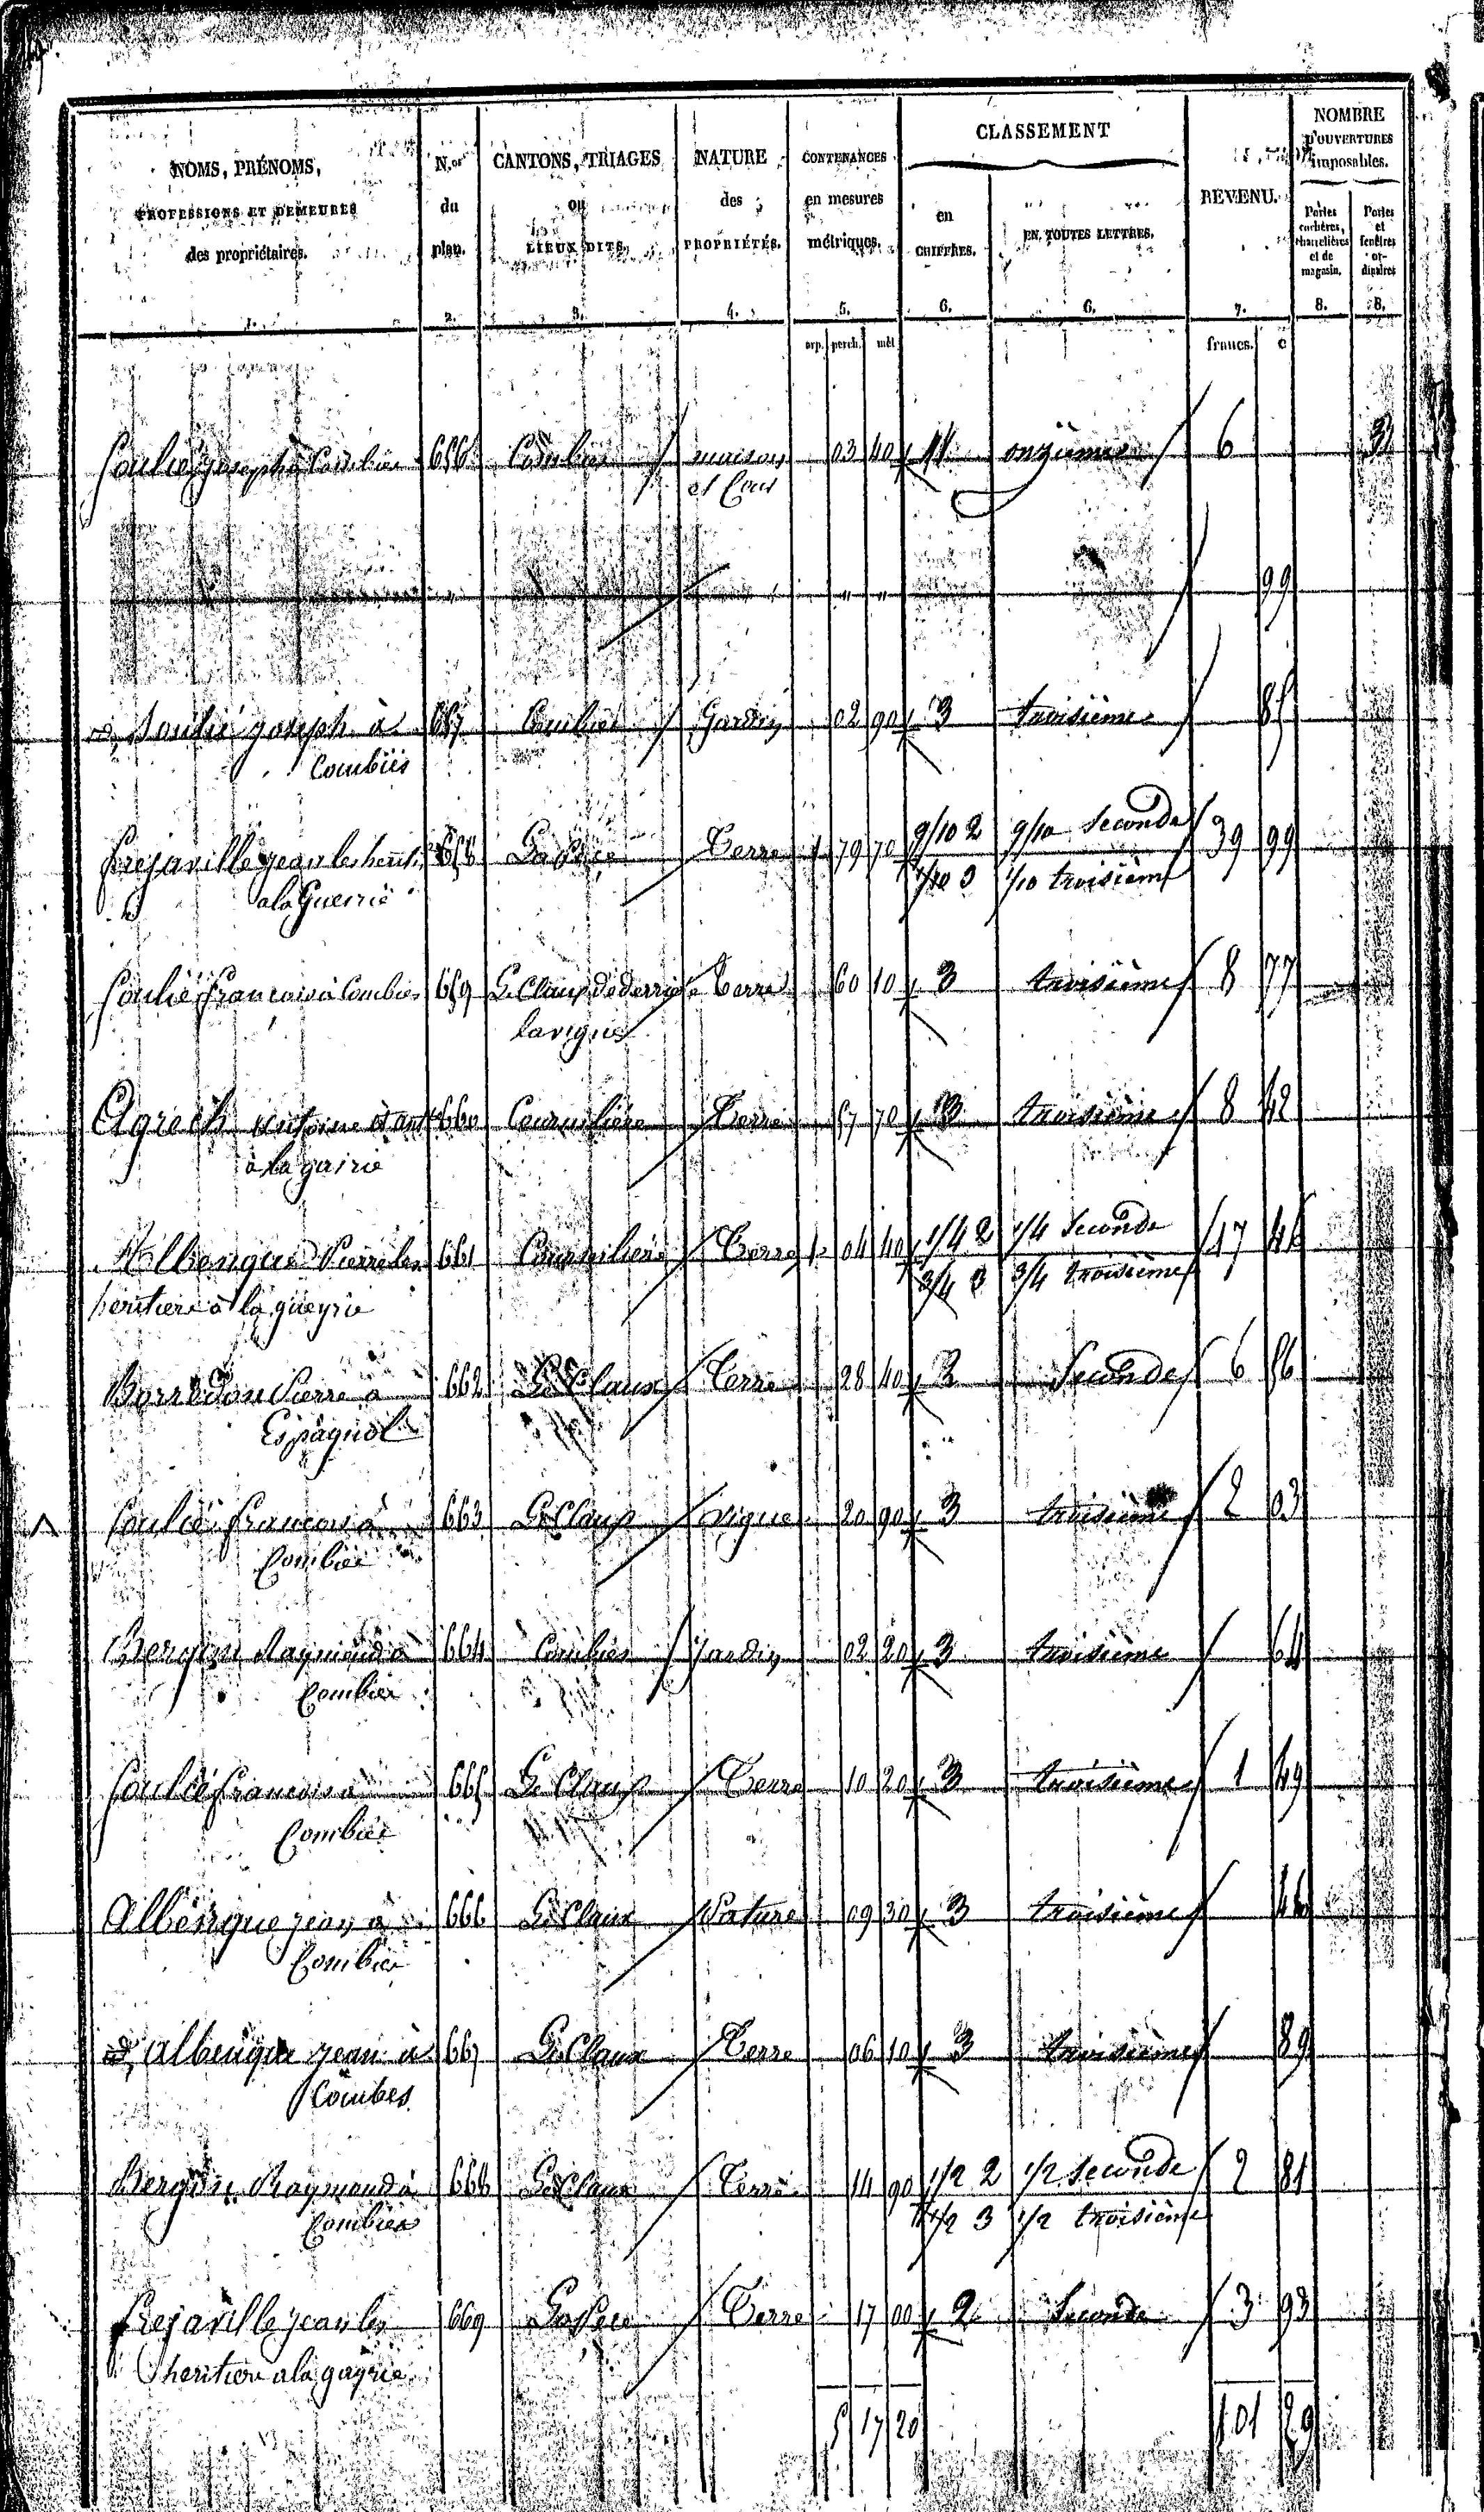 NOMS, PRÉNOMS, PROFESSIONS ET DEMEURES des propriétaires. 1.
N.os du plan. 2.
CANTONS, TRIAGES ou LIEUX DITS. 3.
NATURE des PROPRIÉTÉS. 4.
CONTENANCES en mesures métriques. 5.
CLASSEMENT
en CHIFFRES. 6.
EN TOUTES LETTRES. 6.
REVENU. 7.
NOMBRE D'OUVERTURES imposables.
Portes cochères, charretières et de magasin. 8.
Portes et fenêtres ordinaires 8.
arp. perch. mèt francs. c
Soulié joseph à Combies 656 Combies maison 03 40 11 onzième 6
et Cour
" " " 99
id, Soulié joseph à 657 Combies Jardin 02 90 3 troisième 85
Combiès
frejaville jean les herit. 658 Terre 1 79 70 9/10 2 9/10 seconde 39 99
a la Guerrie 1/10 3 1/10 troisième
Soulié francois à Combies 659 Le Claux de derrière Terre 60 10 3 troisième 8 77
la vigne
Agrech antoine 660 Terre 57 70 3 troisième 8 42
à la gairie
Albengue Pierre les 661 Terre 1 04 40 1/4 2 1/4 seconde 17 41
heritiers à la gueyrie 3/4 3 3/4 troisième
Borredon Pierre à 662 Le Claux Terre 28 40 2 Seconde 6 56
Espagnol
Soulié francois à 663 Le Claux vigne 20 90 3 troisième 2 03
Combies
Bergon Raymond à 664 Combies Jardin 02 20 3 troisième 64
Combies
Soulié francois à 665 Le Claux Terre 10 20 3 troisième 1 49
Combies
Albengue jean à 666 Le Claux Pature 09 30 3 troisième 46
Combies
id, albengue jean à 667 Le Claux Terre 06 10 3 troisième 89
Combes
Bergon Raymond à 668 Le Claux Terre 14 90 1/2 2 1/2 seconde 2 81
Combies 1/2 3 1/2 troisième
frejaville jean les 669 Terre 17 00 2 Seconde 3 93
heritiers a la gayrie
5 17 20 101 29